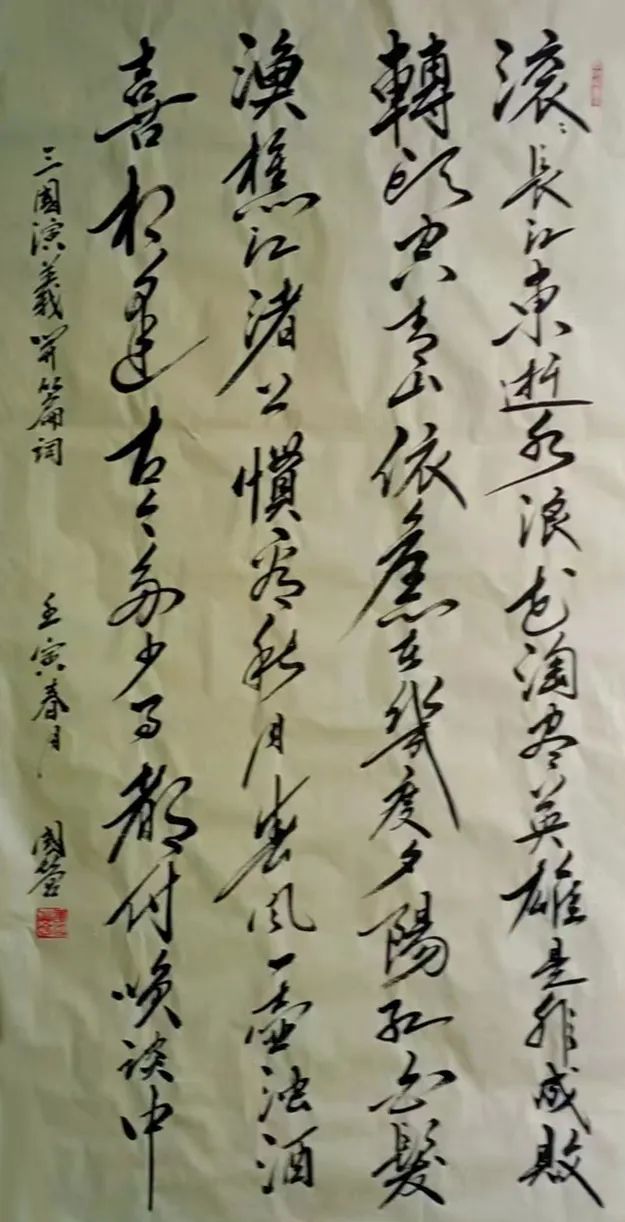 滚〻長江東逝水浪花淘盡英雄是非成敗
轉頭空青山依舊在幾度夕陽紅白髮
漁樵江渚上慣看秋月春風一壺浊酒
喜相逢古今多少事都付笑談中
三國演義開篇词
壬寅春月
國營